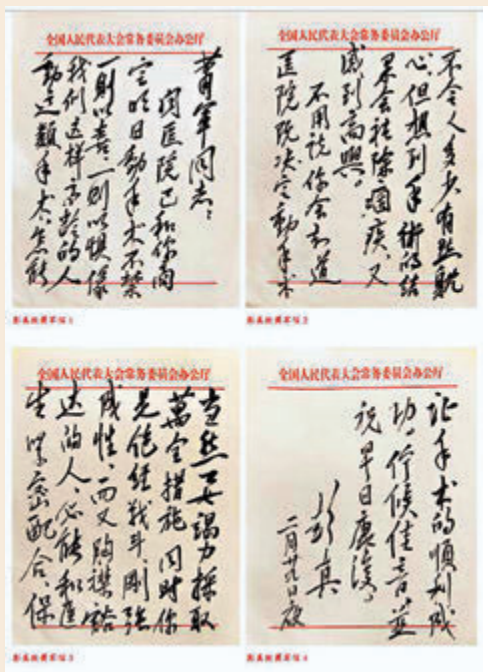 全国人民代表大会常务委员会办公厅
萧軍同志：
闻医院已和你商
定明日動手术不禁
一則以喜、一則以惧像
我们这样高龄的人
動这類手术、怎能
彭真致萧军信1
全国人民代表大会常务委员会办公厅
不令人多少有些耽
心。但想到手術的结
果会祛除痼疾、又
感到高興。
不用说你会知道
医院既决定動手术
彭真致萧军信2
全国人民代表大会常务委员会办公厅
当然要竭力採取
萬全措施、同时你
是饱经战斗、刚强
成性、而又胸襟豁
达的人、必能和医
生紧密配合、保
彭真致萧军信3
全国人民代表大会常务委员会办公厅
证手术的順利成
功。佇候佳音、並
祝早日康復。
彭真
二月廿日夜
彭真致萧军信4